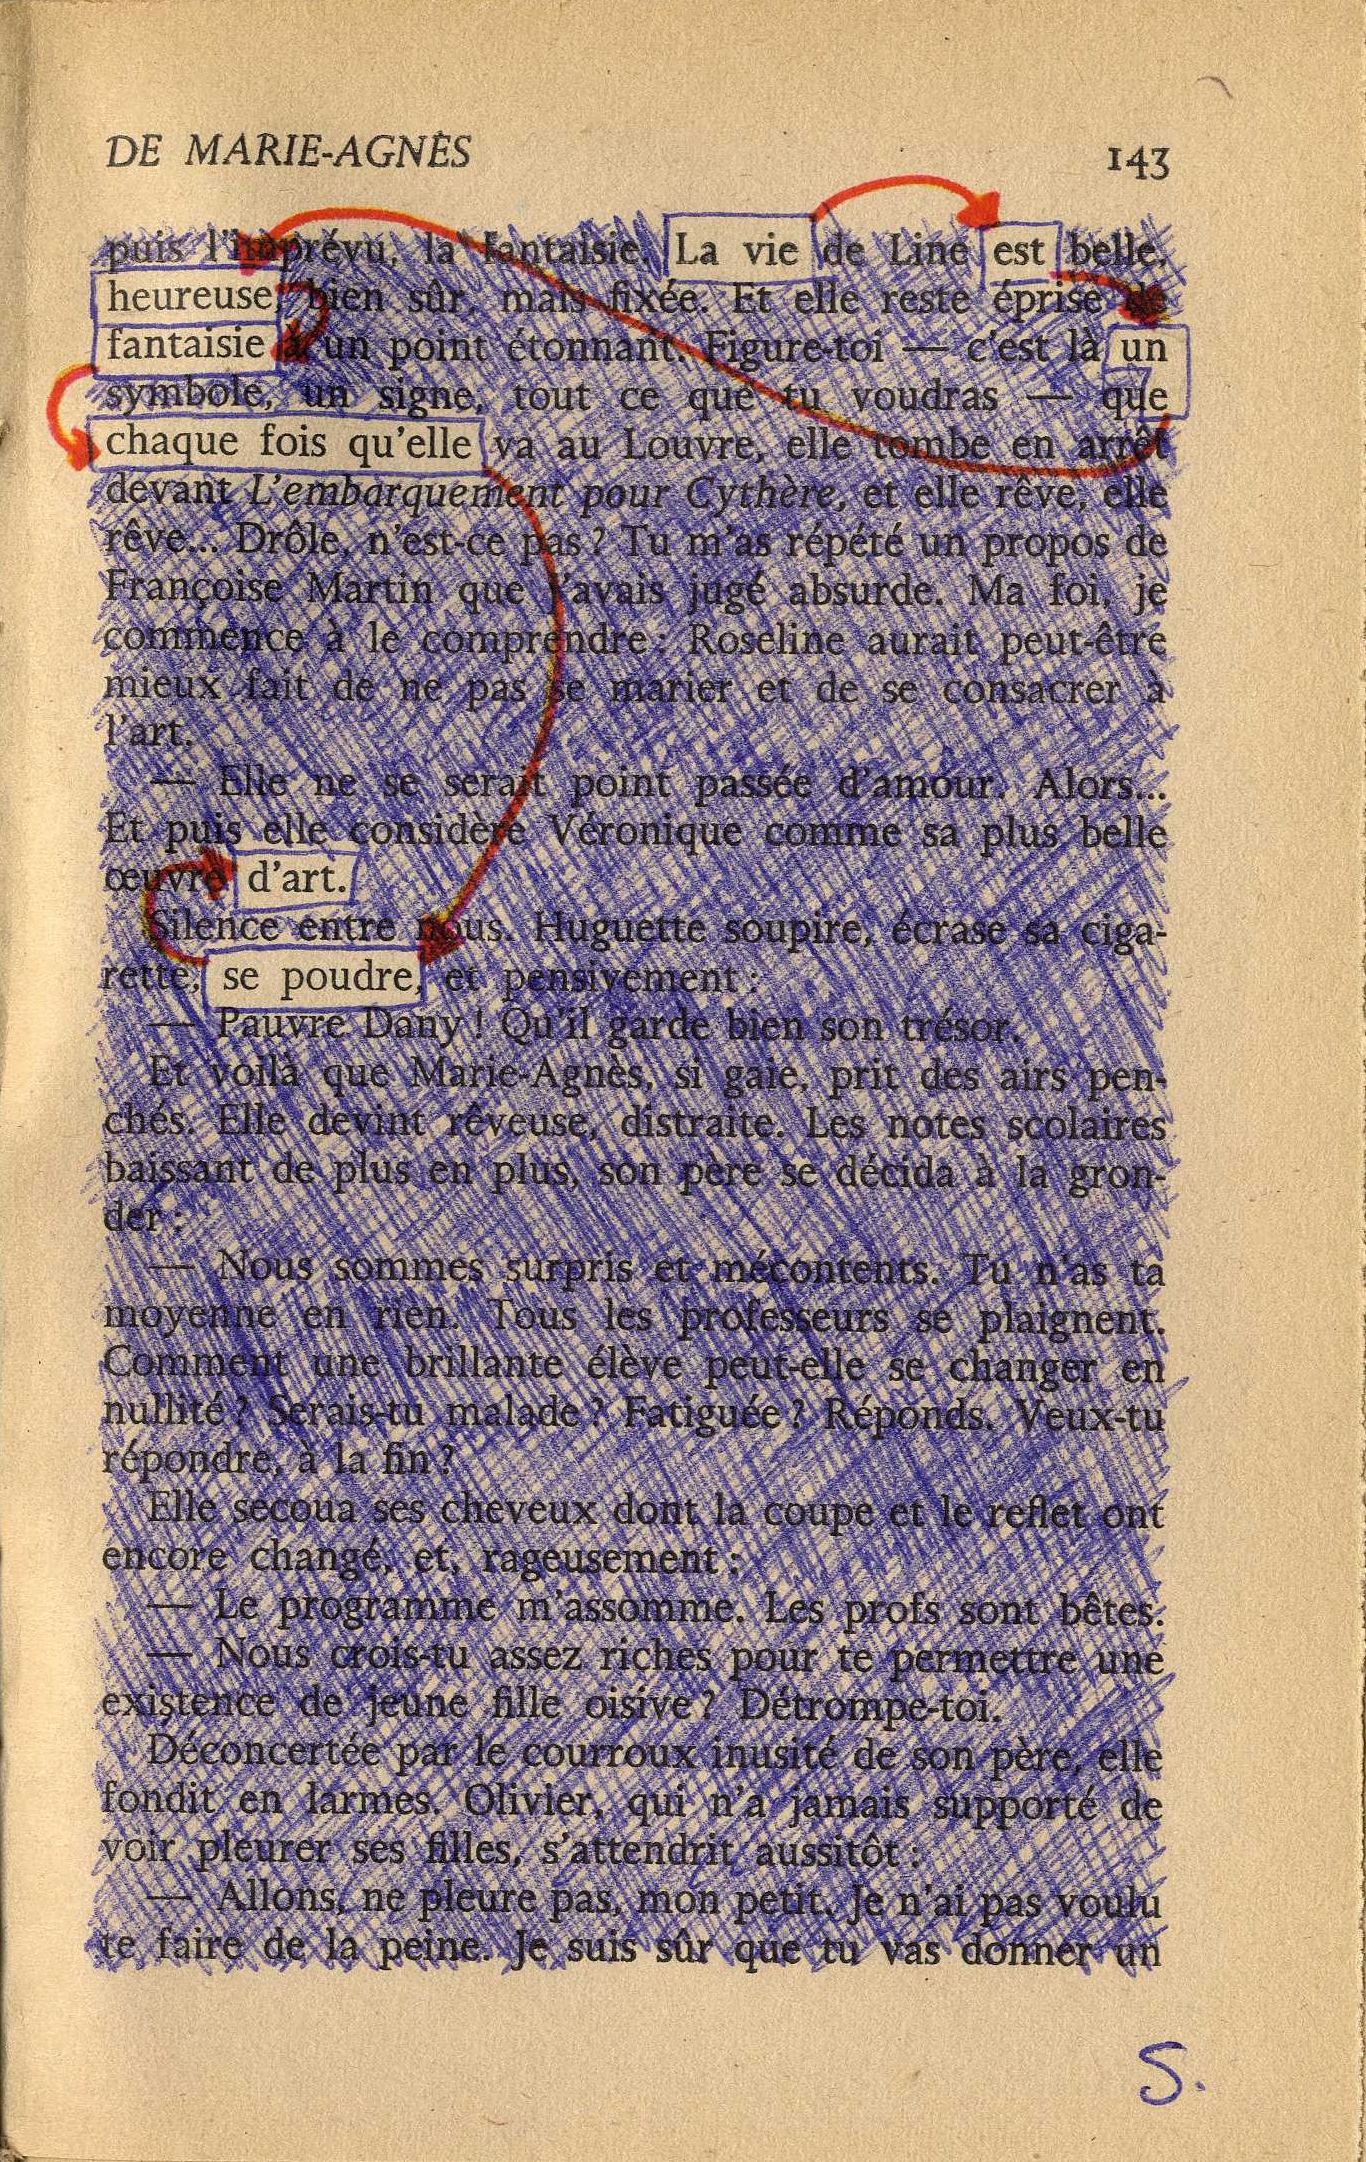 DE MARIE-AGNÈS 143
puis l'imprévu, la fantaisie. La vie de Line est belle,
heureuse, bien sûr, mais fixée. Et elle reste éprise de
fantaisie à un point étonnant. Figure-toi — c'est là un
symbole, un signe, tout ce que tu voudras — que
chaque fois qu'elle va au Louvre, elle tombe en arrêt
devant L'embarquement pour Cythère, et elle rêve, elle
rêve... Drôle, n'est-ce pas ? Tu m'as répété un propos de
Françoise Martin que j'avais jugé absurde. Ma foi, je
commence à le comprendre : Roseline aurait peut-être
mieux fait de ne pas se marier et de se consacrer à
l'art.
— Elle ne se serait point passée d'amour. Alors...
Et puis elle considère Véronique comme sa plus belle
œuvre d'art.
Silence entre nous. Huguette soupire, écrase sa ciga-
rette, se poudre, et pensivement :
— Pauvre Dany ! Qu'il garde bien son trésor.
Et voilà que Marie-Agnès, si gaie, prit des airs pen-
chés. Elle devint rêveuse, distraite. Les notes scolaires
baissant de plus en plus, son père se décida à la gron-
der :
— Nous sommes surpris et mécontents. Tu n'as ta
moyenne en rien. Tous les professeurs se plaignent.
Comment une brillante élève peut-elle se changer en
nullité ? Serais-tu malade ? Fatiguée ? Réponds. Veux-tu
répondre, à la fin ?
Elle secoua ses cheveux dont la coupe et le reflet ont
encore changé, et, rageusement :
— Le programme m'assomme. Les profs sont bêtes.
— Nous crois-tu assez riches pour te permettre une
existence de jeune fille oisive ? Détrompe-toi.
Déconcertée par le courroux inusité de son père, elle
fondit en larmes. Olivier, qui n'a jamais supporté de
voir pleurer ses filles, s'attendrit aussitôt :
— Allons, ne pleure pas, mon petit. Je n'ai pas voulu
te faire de la peine. Je suis sûr que tu vas donner un
S.